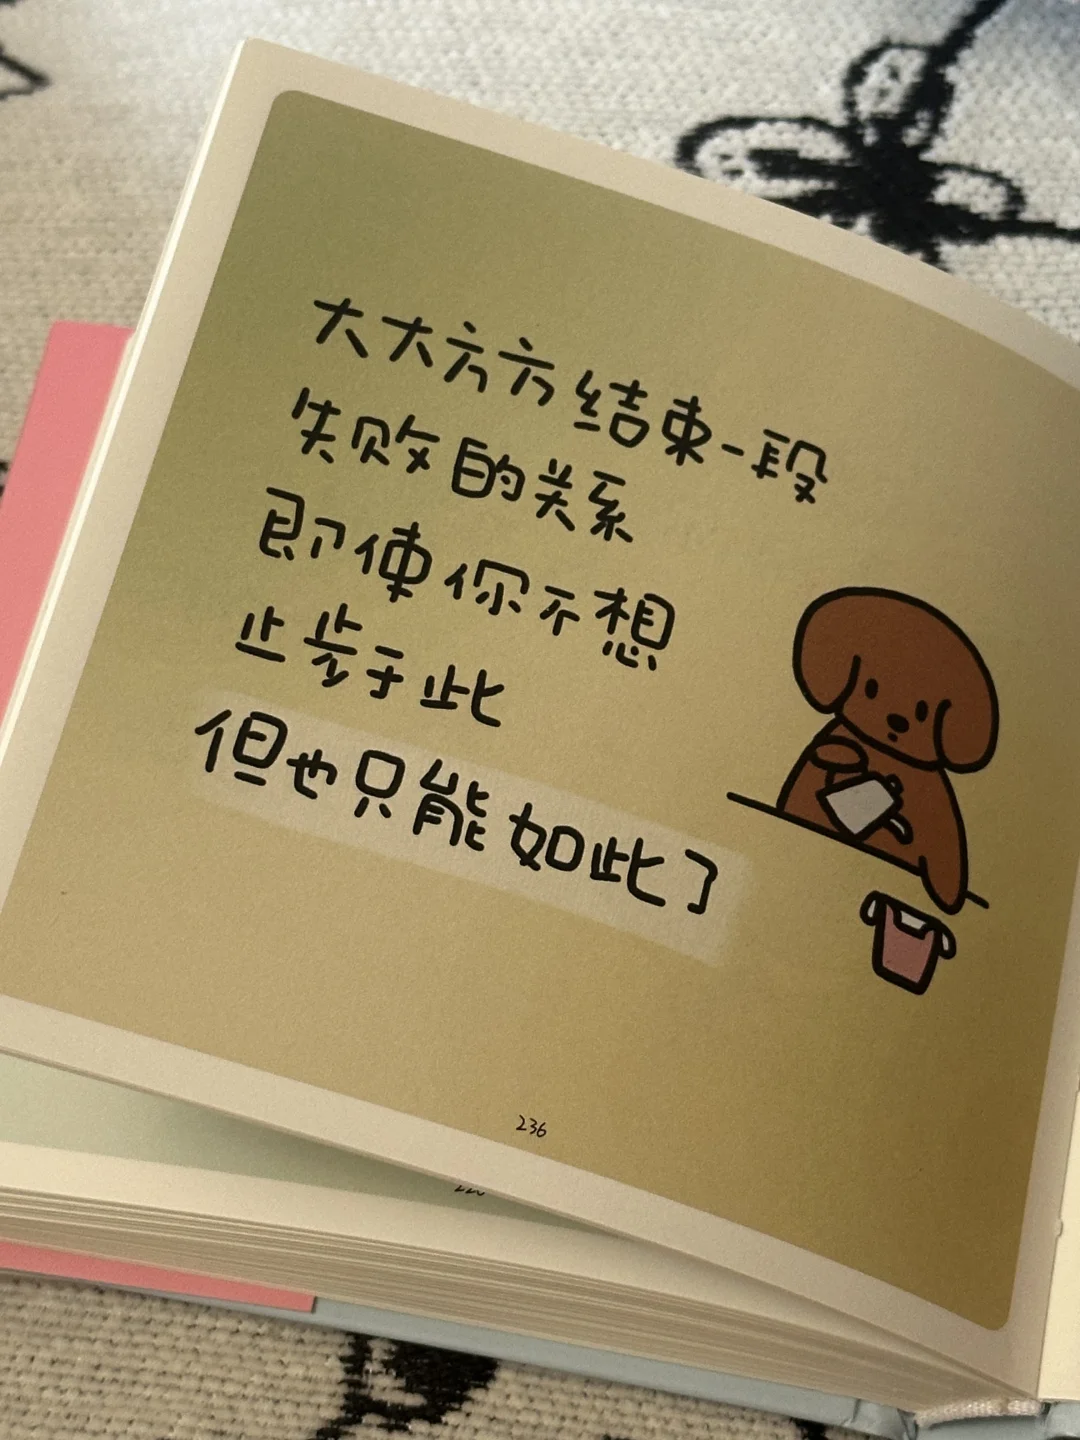 大大方方结束一段
失败的关系
即使你不想
止步于此
但也只能如此了
236